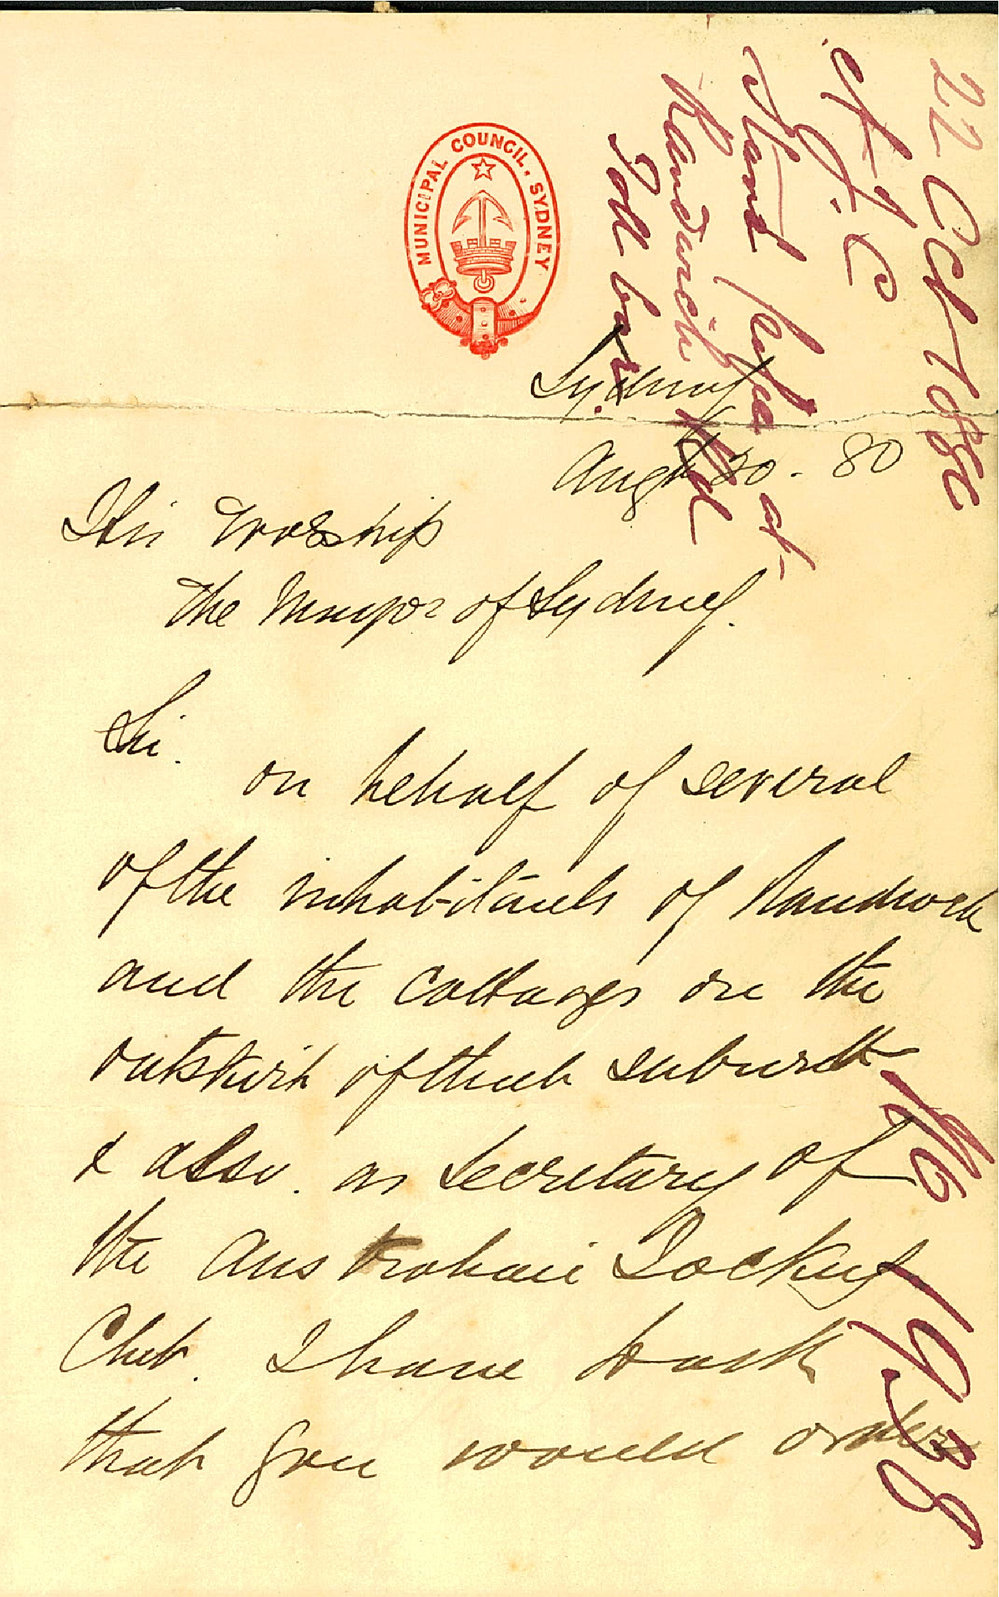 MUNICIPAL COUNCIL. SYDNEY
22 Oct 1880
A.J.C
Stand pipe at
Randwick Rd
Toll bar
Sydney
Augt 20. 80
His Worship
the Mayor of Sydney.
Sir.
on behalf of several
of the inhabitants of Randwick
and the cottages on the
outskirts of that suburb
& also. as Secretary of
the Australian Jockey
Club. I have to ask
that you would order
1938